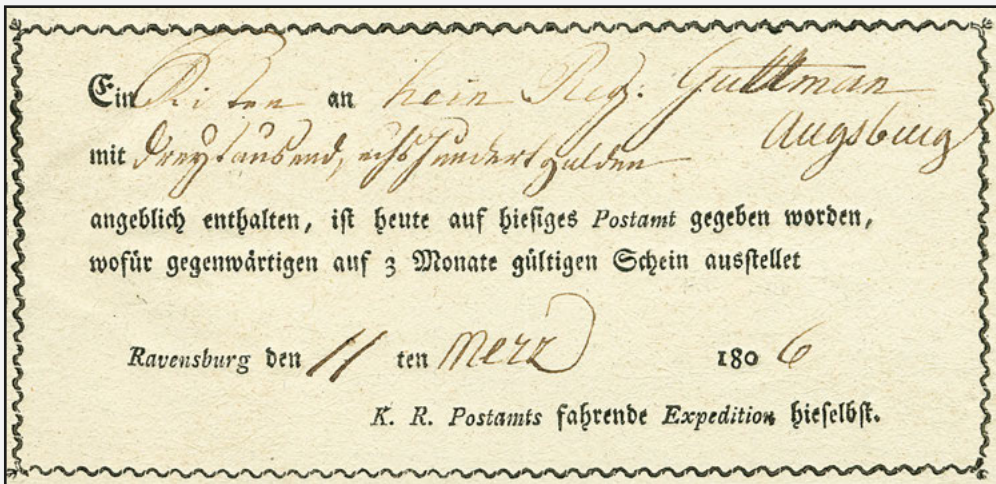 Ein Kisten an Guttman
Augsburg
mit dreytausend, hundert gulden
angeblich enthalten, iſt heute auf hieſiges Postamt gegeben worden,
wofür gegenwärtigen auf 3 Monate gültigen Schein ausſtellet
Ravensburg den 11 ten Merz 1806
K. R. Postamts fahrende Expedition hieſelbſt.